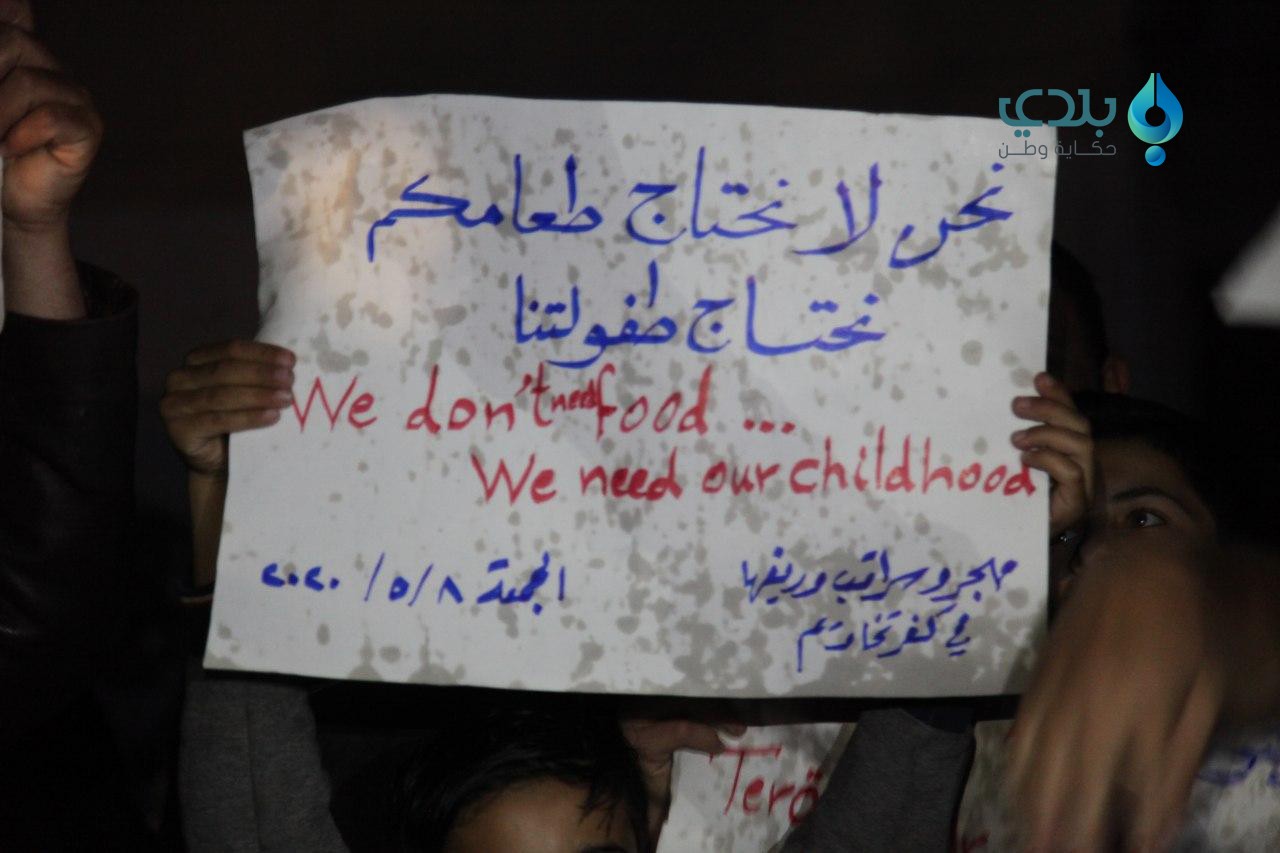 بلدي
حكاية وطن
نحن لا نحتاج طعامكم
نحتاج طفولتنا
We don't need food ...
We need our childhood
مهجرو سراقب وريفها
في كفرتخاريم
الجمعة ٢٠٢٠/٥/٨
Terö